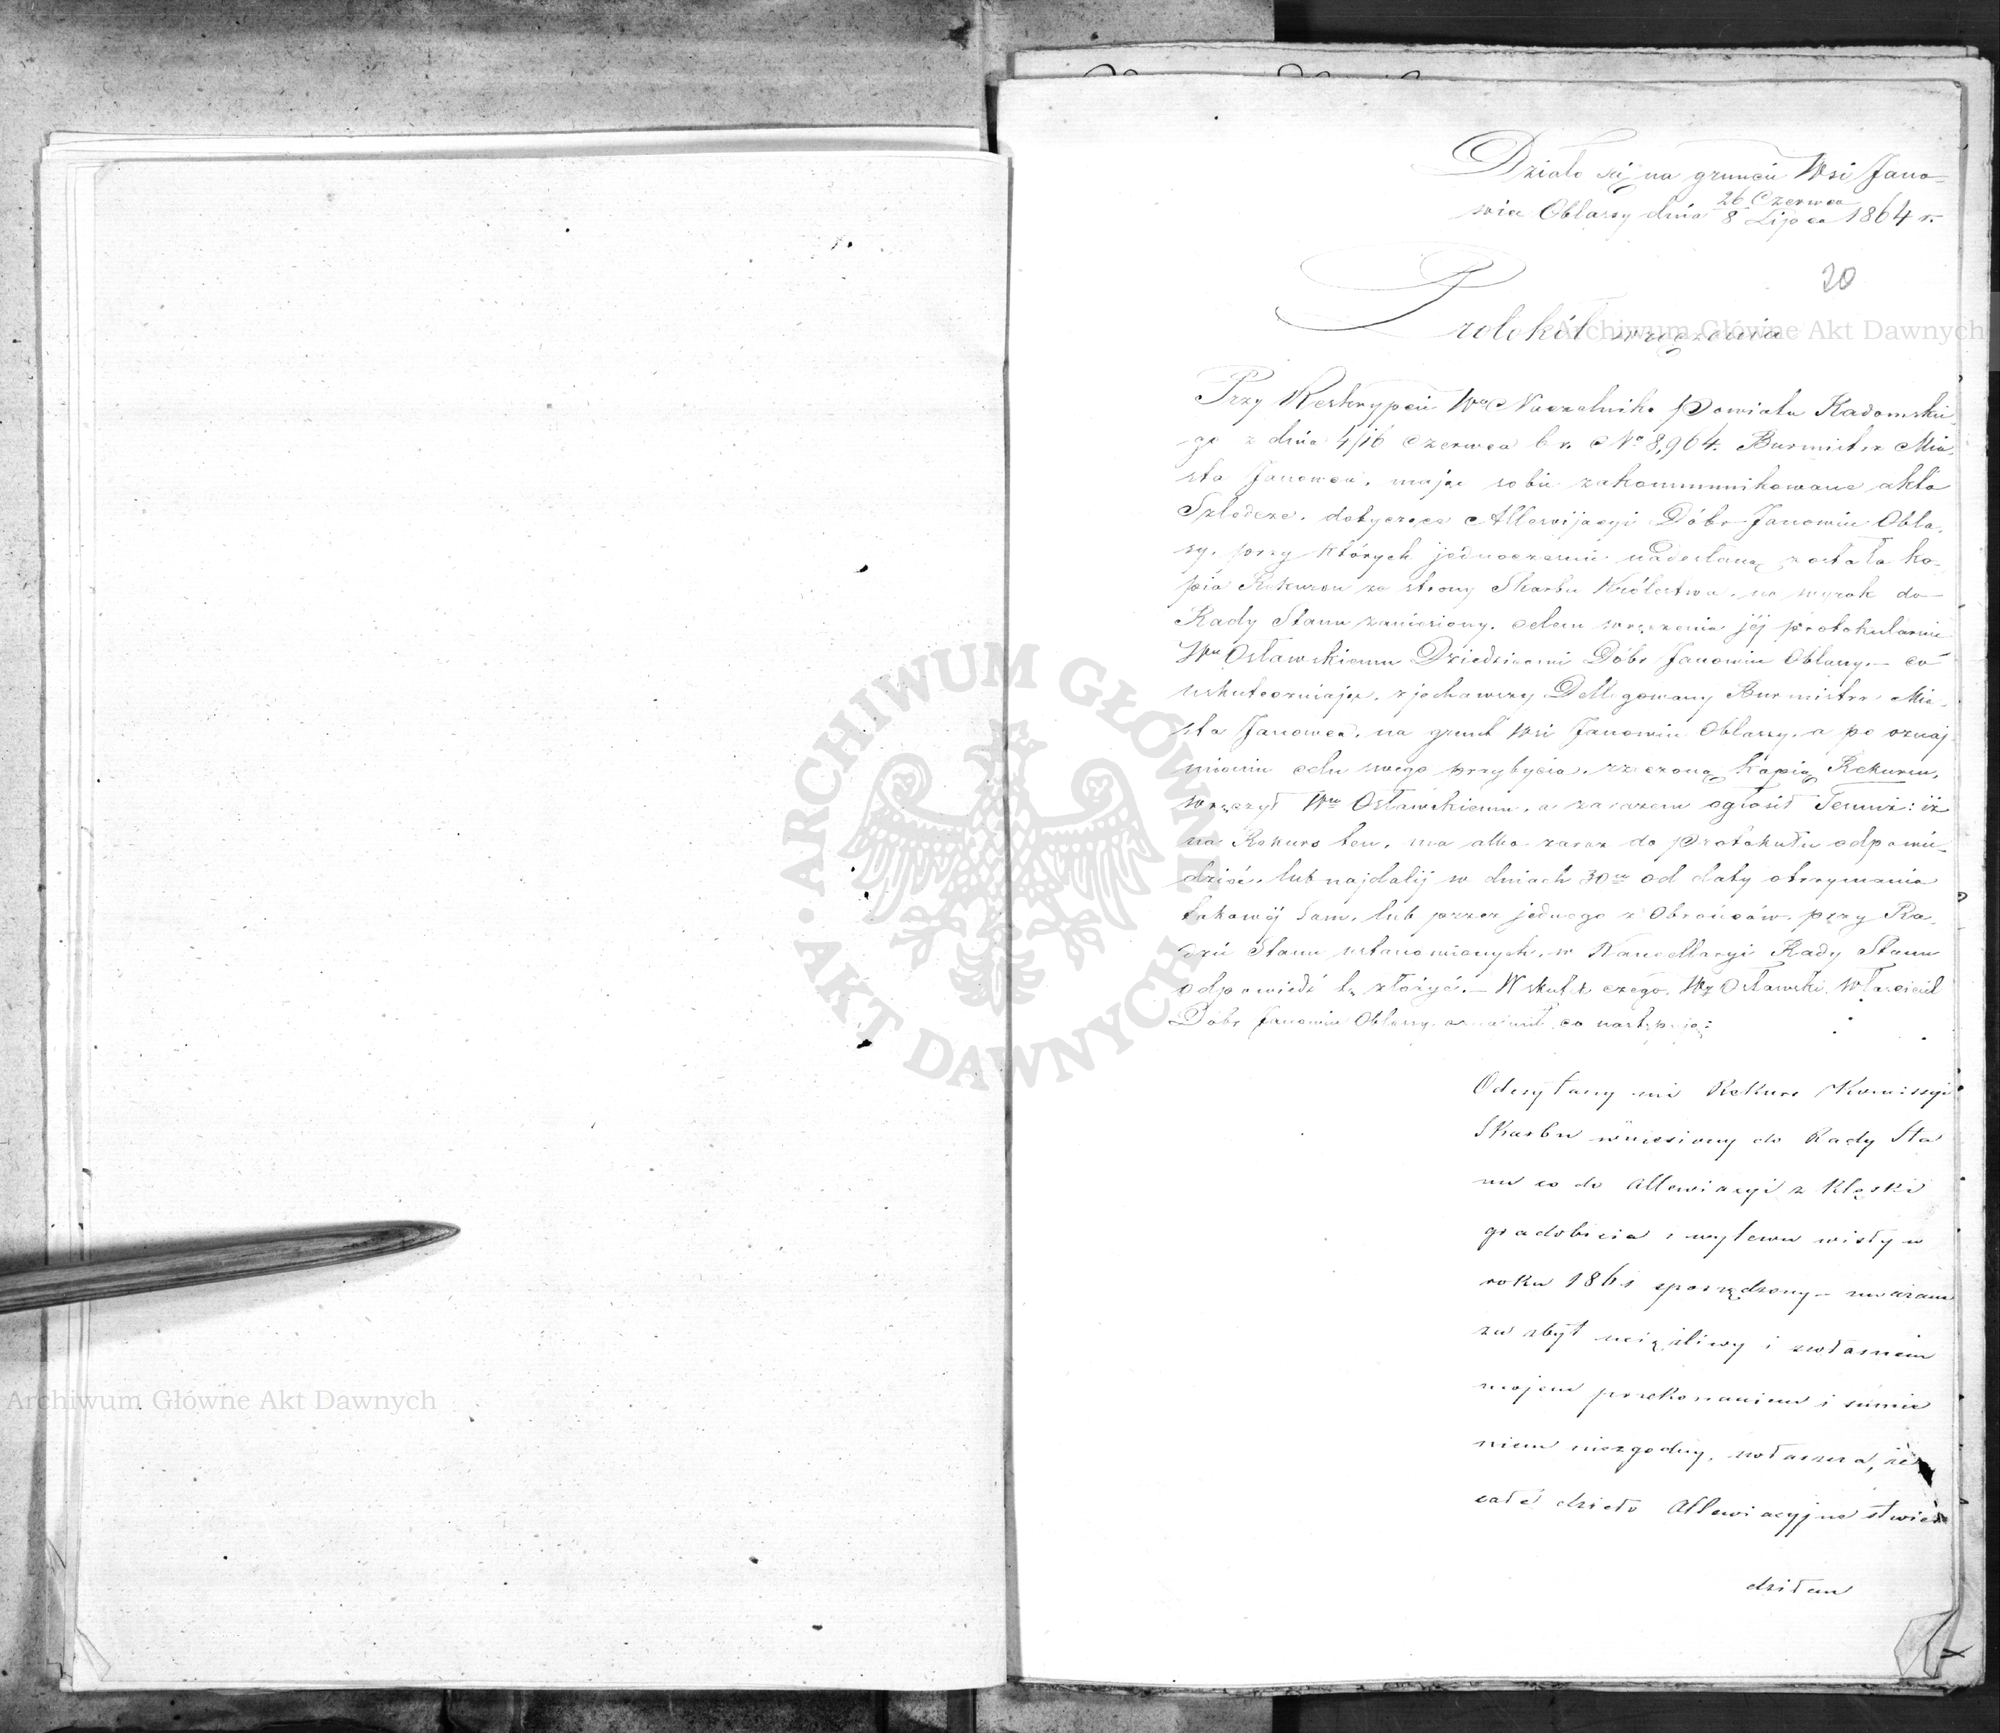 Działo się na gruncie Wsi Jano-
wiec Oblassy dnia 26 Czerwca
8 Lipca 1864 r.
20
Protokół wręczenia
Przy Reskrypcie Wo Naczelnika Powiatu Radomskie-
go z dnia 4/16 Czerwca b r. No 8,964. Burmistrz Mia-
sta Janowca, mając sobie zakommunikowane akta
Szledcze, dotyczące Allewijacyi Dóbr Janowiec Obla-
sy, przy których jednocześnie nadesłaną została ko-
pia Rekursu ze strony Skarbu Królestwa, na wyrok do
Rady Stanu zaniesiony, celem wręczenia jéj protokularnie
Wmu Osławskiemu Dziedzicowi Dóbr Janowiec Oblassy.— co
uskuteczniając, zjechawszy Dellegowany Burmistrz Mia-
sta Janowca, na grunt Wsi Janowiec Oblassy, a po oznaj-
mieniu celu swego przybycia, rzeczoną kopią Rekursu,
wręczył Wmu Osławskiemu, a zarazem ogłosił Temuż: iż
na Rekurs ten, ma albo zaraz do Protokułu odpowie-
dzieć, lub najdaléj w dniach 30tu od daty otrzymania
takowéj sam, lub przez jednego z Obrońców, przy Ra-
dzie Stanu ustanowionych, w Kancellaryi Rady Stanu
odpowiedź tę złożyć.— W skutek czego, Wy Osławski Właściciel
Dóbr Janowiec Oblassy oznajmił co następuje:
Odesłany mi Rekurs Komissyi
Skarbu wniesiony do Rady Sta
nu co do Allewiacyi z klęski
gradobicia i wylewu wisły w
roku 1861 sporządzony — uważam
za zbyt uciążliwy i z własnem
mojem przekonaniem i sumie
niem niezgodny, zwłaszcza, że
całe dzieło Allewiacyjne stwier
dziłem
Archiwum Główne Akt Dawnych
Archiwum Główne Akt Dawnych
ARCHIWUM GŁÓWNE AKT DAWNYCH